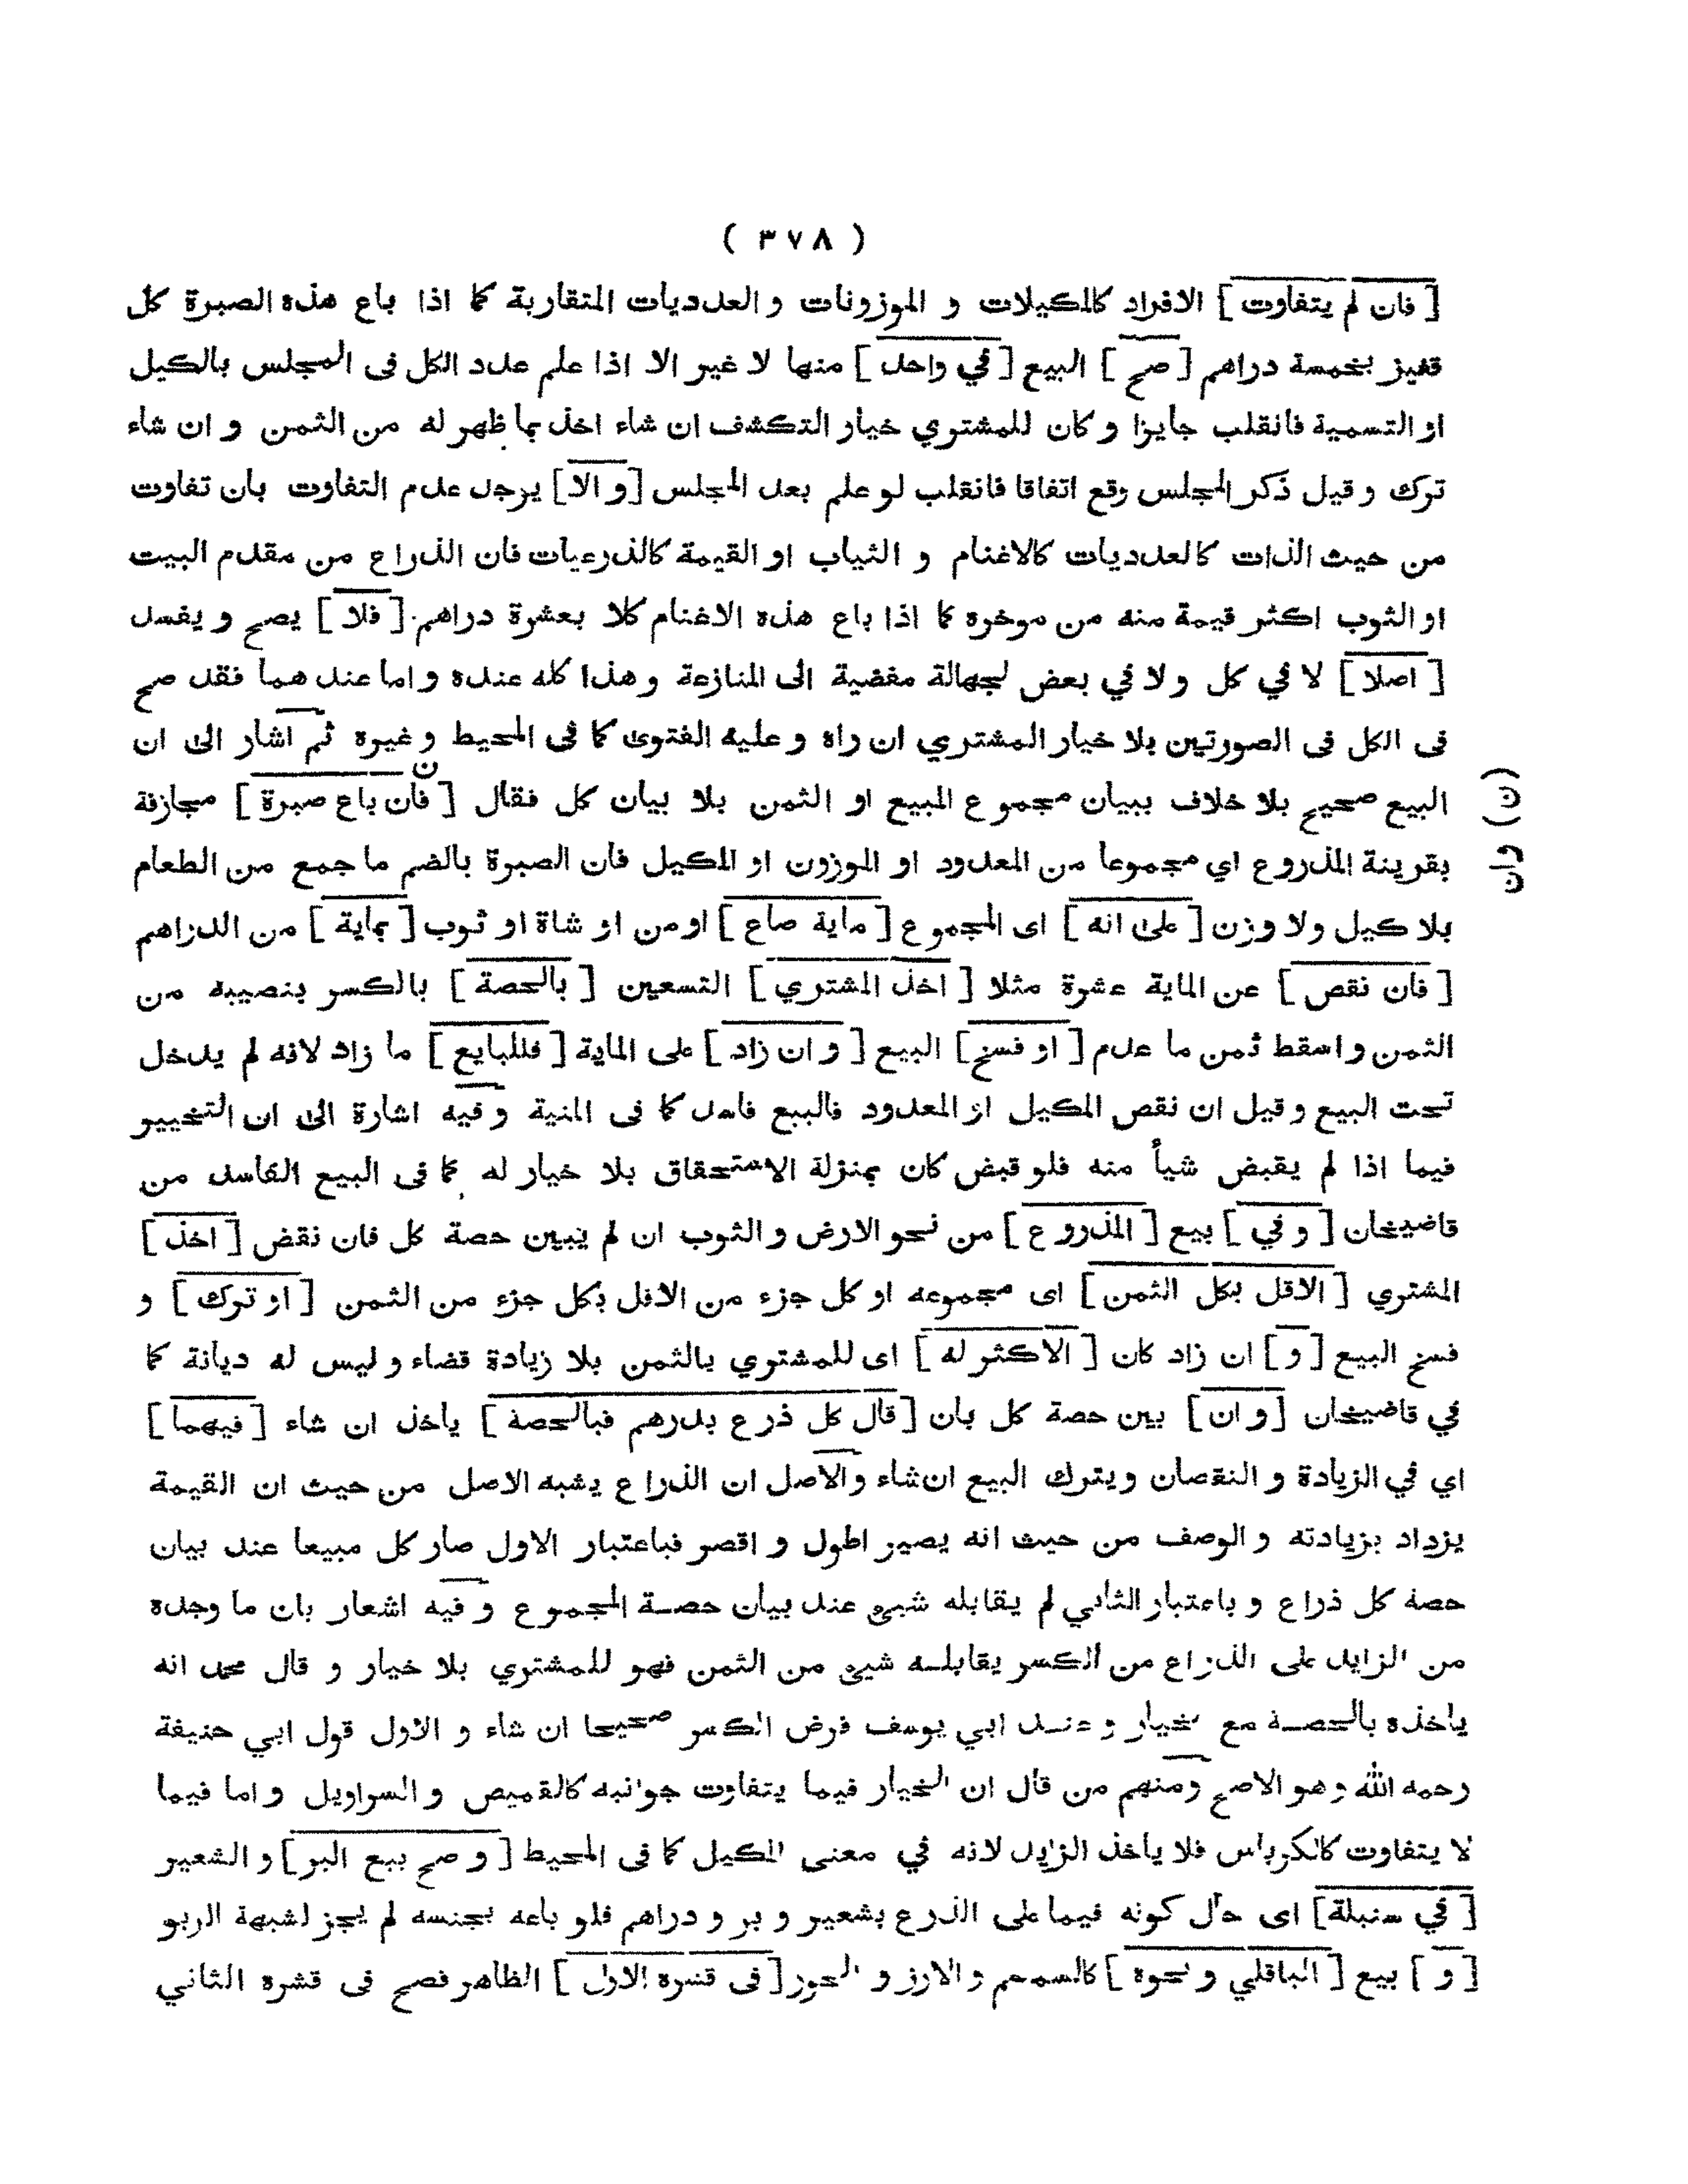 ( ٣٧٨ )
[ فان لم يتفاوت ] الافراد كالمكيلات و الموزونات و العدديات المتقاربة كما اذا باع هذه الصبرة كل
قفيز بخمسة دراهم [ صح ] البيع [ في واحد ] منها لا غير الا اذا علم عدد الكل فى المجلس بالكيل
او التسمية فانقلب جايزا و كان للمشتري خيار التكشف ان شاء اخذ بما ظهر له من الثمن و ان شاء
ترك و قيل ذكر المجلس وقع اتفاقا فانقلب لو علم بعد المجلس [ و الا ] يوجد عدم التفاوت بان تفاوت
من حيث الذات كالعدديات كالاغنام و الثياب او القيمة كالذرعيات فان الذراع من مقدم البيت
او الثوب اكثر قيمة منه من موخره كما اذا باع هذه الاغنام كلا بعشرة دراهم [ فلا ] يصح و يفسد
[ اصلا ] لا في كل و لا في بعض لجهالة مفضية الى المنازعة و هذا كله عنده و اما عند هما فقد صح
فى الكل فى الصورتين بلا خيار المشتري ان راه و عليه الفتوى كما فى المحيط و غيره ثم اشار الى ان
البيع صحيح بلا خلاف ببيان مجموع المبيع او الثمن بلا بيان كل فقال [ فان باع صبرة ] مجازفة
ن
(ن) وان
بقرينة المذروع اي مجموعا من المعدود او الموزون او المكيل فان الصبرة بالضم ما جمع من الطعام
بلا كيل و لا وزن [ على انه ] اى المجموع [ ماية صاع ] او من او شاة او ثوب [ بماية ] من الدراهم
[ فان نقص ] عن الماية عشرة مثلا [ اخذ المشتري ] التسعين [ بالحصة ] بالكسر بنصيبه من
الثمن و اسقط ثمن ما عدم [ او فسخ ] البيع [ و ان زاد ] على الماية [ فللبايع ] ما زاد لانه لم يدخل
تحت البيع و قيل ان نقص المكيل او المعدود فالبيع فاسد كما فى المنية و فيه اشارة الى ان التخيير
فيما اذا لم يقبض شيأ منه فلو قبض كان بمنزلة الاستحقاق بلا خيار له كما فى البيع الفاسد من
قاضيخان [ و في ] بيع [ المذروع ] من نحو الارض و الثوب ان لم يبين حصة كل فان نقض [ اخذ ]
المشتري [ الاقل بكل الثمن ] اى مجموعه او كل جزء من الاقل بكل جزء من الثمن [ او ترك ] و
فسخ البيع [ و ] ان زاد كان [ الاكثر له ] اى للمشتري بالثمن بلا زيادة قضاء و ليس له ديانة كما
في قاضيخان [ و ان ] بين حصة كل بان [ قال كل ذرع بدرهم فبالحصة ] ياخذ ان شاء [ فيهما ]
اي في الزيادة و النقصان و يترك البيع ان شاء و الاصل ان الذراع يشبه الاصل من حيث ان القيمة
يزداد بزيادته و الوصف من حيث انه يصير اطول و اقصر فباعتبار الاول صار كل مبيعا عند بيان
حصة كل ذراع و باعتبار الثاني لم يقابله شيئ عند بيان حصة المجموع و فيه اشعار بان ما وجده
من الزايد على الذراع من الكسر يقابله شيئ من الثمن فهو للمشتري بلا خيار و قال محمد انه
ياخذه بالحصة مع الخيار و عند ابي يوسف فرض الكسر صحيحا ان شاء و الاول قول ابي حنيفة
رحمه الله و هو الاصح و منهم من قال ان الخيار فيما يتفاوت جوانبه كالقميص و السراويل و اما فيما
لا يتفاوت كالكرباس فلا ياخذ الزايد لانه في معنى المكيل كما فى المحيط [ و صح بيع البر ] و الشعير
[ في سنبلة ] اى حال كونه فيما على الذرع بشعير و بر و دراهم فلو باعه بجنسه لم يجز لشبهة الربو
[ و ] بيع [ الباقلي و نحوه ] كالسمسم و الارز و الجوز [ فى قشره الاول ] الظاهر فصح فى قشره الثاني